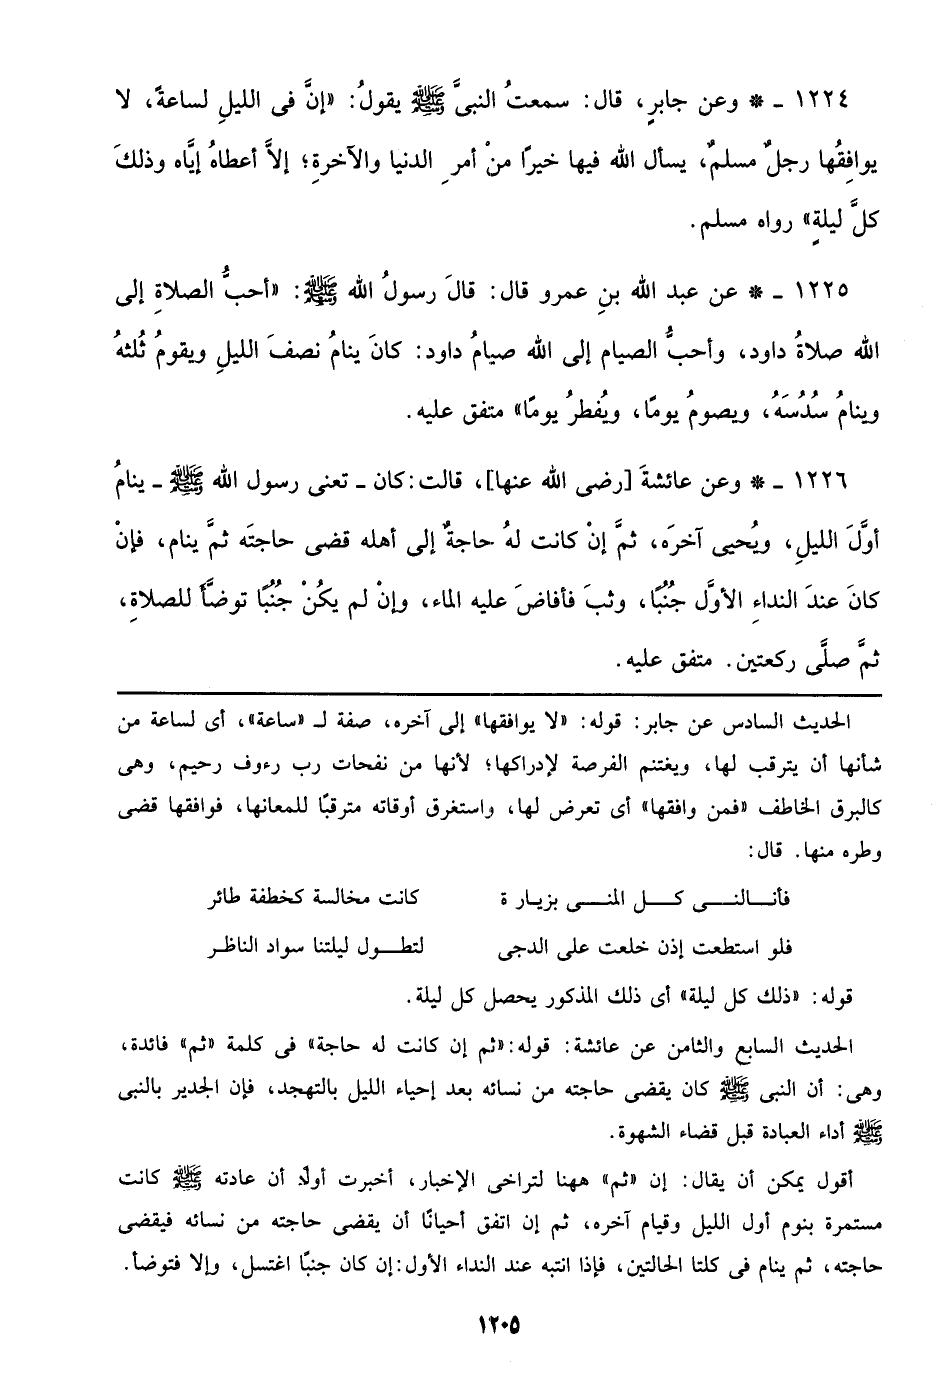 ١٢٢٤ ـ * وعن جابرٍ، قال: سمعتُ النبىَّ ﷺ يقولُ: «إنَّ فى الليلِ لساعةً، لا
يوافِقُها رجلٌ مسلمٌ، يسأل الله فيها خيرًا منْ أمرِ الدنيا والآخرةِ؛ إلاَّ أعطاهُ إيَّاه وذلكَ
كلَّ ليلةٍ» رواه مسلم.
١٢٢٥ ـ * عن عبد الله بنِ عمرو قال: قالَ رسولُ الله ﷺ: «أحبُّ الصلاةِ إلى
الله صلاةُ داود، وأحبُّ الصيام إلى الله صيامُ داود: كانَ ينامُ نصفَ الليلِ ويقومُ ثُلثهُ
وينامُ سُدُسَهُ، ويصومُ يومًا، ويُفطرُ يومًا» متفق عليه.
١٢٢٦ ـ * وعن عائشةَ [رضى الله عنها]، قالت: كان ـ تعنى رسول الله ﷺ ـ ينامُ
أوَّلَ الليلِ، ويُحيى آخرَه، ثمَّ إنْ كانت لهُ حاجةٌ إلى أهله قضى حاجتَه ثمَّ ينام، فإنْ
كانَ عندَ النداءِ الأوَّل جُنُبًا، وثبَ فأفاضَ عليه الماء، وإنْ لم يكُنْ جُنُبًا توضَّأ للصلاةِ،
ثمَّ صلَّى ركعتين. متفق عليه.
الحديث السادس عن جابر: قوله: «لا يوافقها» إلى آخره، صفة لـ «ساعة»، أى لساعة من
شأنها أن يترقب لها، ويغتنم الفرصة لإدراكها؛ لأنها من نفحات رب رءوف رحيم، وهى
كالبرق الخاطف «فمن وافقها» أى تعرض لها، واستغرق أوقاته مترقبًا للمعانها، فوافقها قضى
وطره منها. قال:
فأنـالنـى كـل المنـى بزيـارة كانت مخالسة كخطفة طائر
فلو استطعت إذن خلعت على الدجى لتطـول ليلتنا سواد الناظـر
قوله: «ذلك كل ليلة» أى ذلك المذكور يحصل كل ليلة.
الحديث السابع والثامن عن عائشة: قوله: «ثم إن كانت له حاجة» فى كلمة «ثم» فائدة،
وهى: أن النبى ﷺ كان يقضى حاجته من نسائه بعد إحياء الليل بالتهجد، فإن الجدير بالنبى
ﷺ أداء العبادة قبل قضاء الشهوة.
أقول يمكن أن يقال: إن «ثم» ههنا لتراخى الإخبار، أخبرت أولاً أن عادته ﷺ كانت
مستمرة بنوم أول الليل وقيام آخره، ثم إن اتفق أحيانًا أن يقضى حاجته من نسائه فيقضى
حاجته، ثم ينام فى كلتا الحالتين، فإذا انتبه عند النداء الأول: إن كان جنبًا اغتسل، وإلا فتوضأ.
١٢٠٥